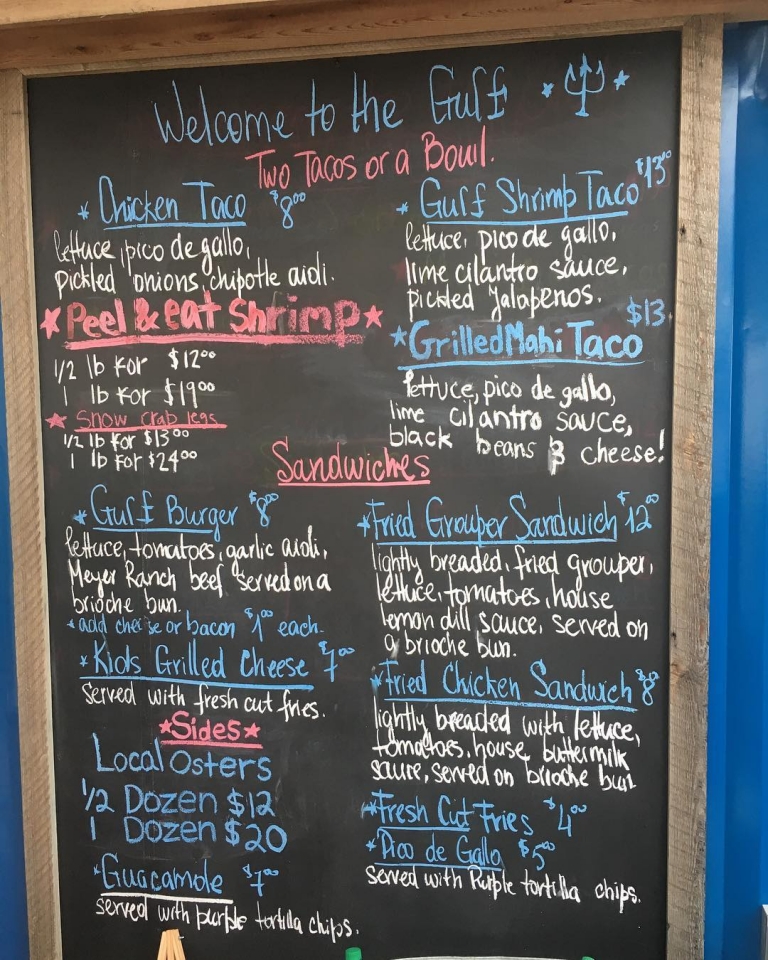 Welcome to the Gulf
Two Tacos or a Bowl.
* Chicken Taco $8⁰⁰
lettuce, pico de gallo,
pickled onions, chipotle aioli.
* Gulf Shrimp Taco $13⁰⁰
lettuce, pico de gallo,
lime cilantro sauce,
pickled Jalapenos.
★ Peel & eat Shrimp ★
1/2 lb for $12⁰⁰
1 lb for $19⁰⁰
★ Snow crab legs
1/2 lb for $13⁰⁰
1 lb for $24⁰⁰
* Grilled Mahi Taco $13
lettuce, pico de gallo,
lime cilantro sauce,
black beans & cheese!
Sandwiches
* Gulf Burger $8⁰⁰
lettuce, tomatoes, garlic aioli,
Meyer Ranch beef served on a
brioche bun.
* add cheese or bacon $1⁰⁰ each.
* Kids Grilled Cheese $7⁰⁰
Served with fresh cut fries.
* Fried Grouper Sandwich $12⁰⁰
lightly breaded, fried grouper,
lettuce, tomatoes, house
lemon dill sauce, served on
a brioche bun.
* Fried Chicken Sandwich $8⁰⁰
lightly breaded with lettuce,
tomatoes, house buttermilk
sauce, served on brioche bun
★ Sides ★
Local Osters
1/2 Dozen $12
1 Dozen $20
* Guacamole $7⁰⁰
served with purple tortilla chips.
* Fresh Cut Fries $4⁰⁰
* Pico de Gallo $5⁰⁰
served with Purple tortilla chips.